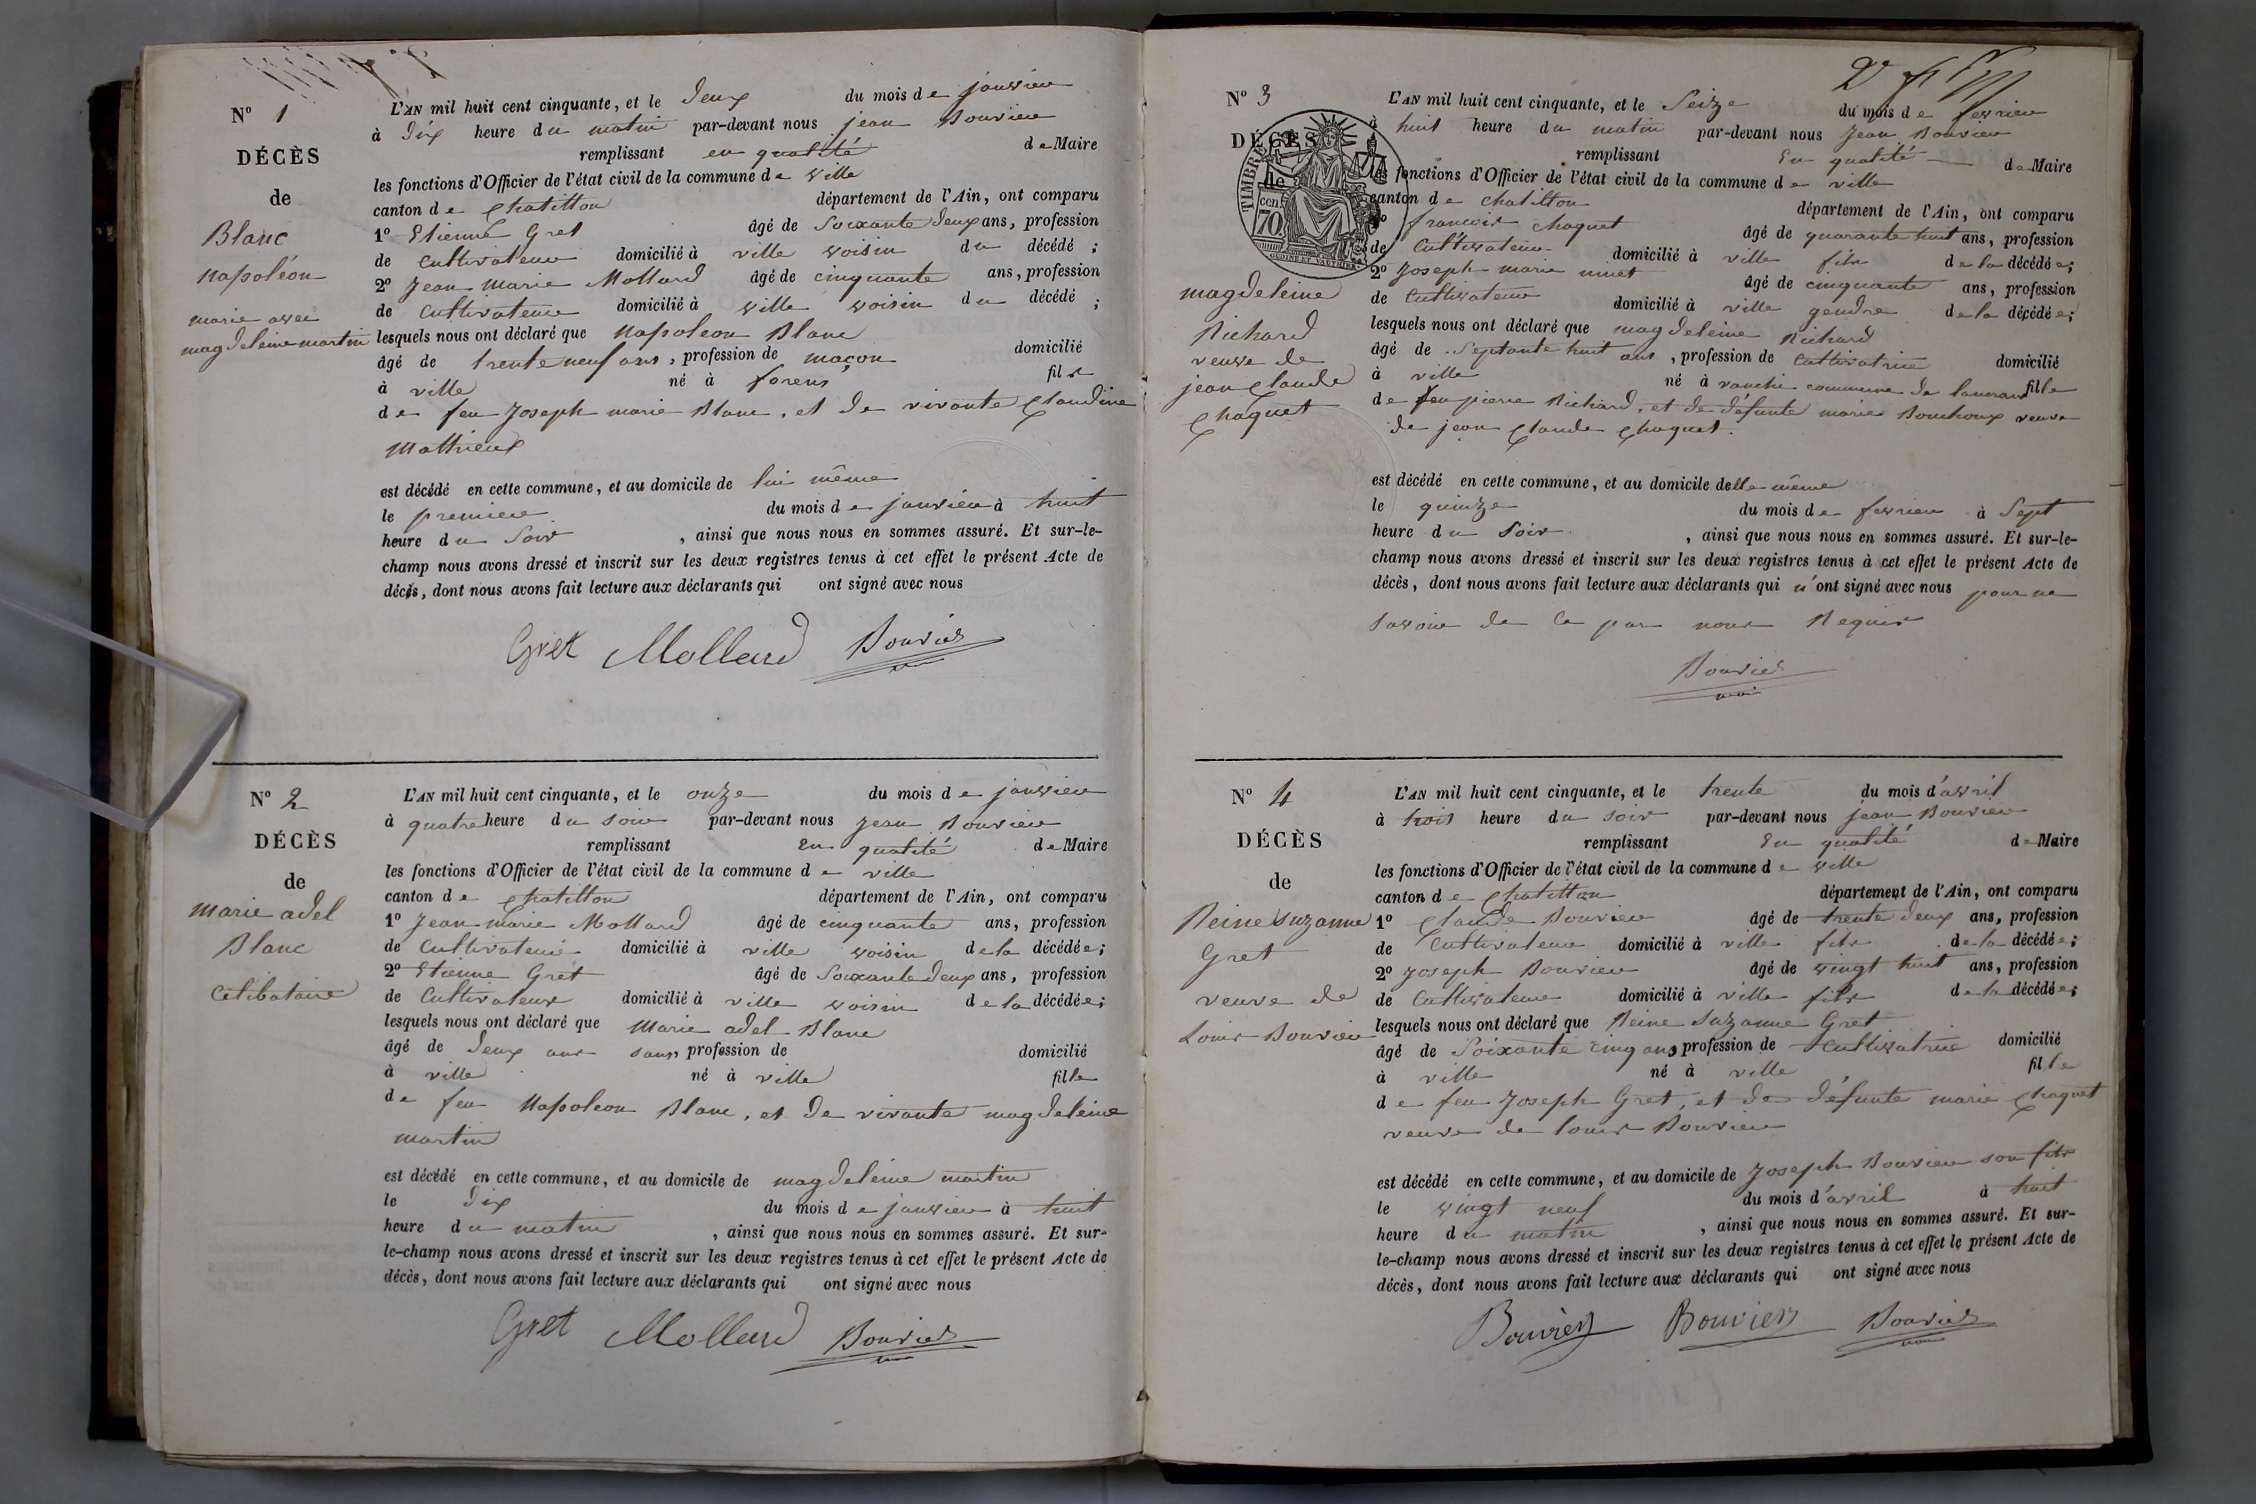 N° 1
DÉCÈS
de
Blanc
Napoléon
marie avec
magdeleine martin
L'AN mil huit cent cinquante, et le deux du mois de janvier
à dix heure du matin par-devant nous jean Bouvier
remplissant en qualité de Maire
les fonctions d'Officier de l'état civil de la commune de ville
canton de Chatillon département de l'Ain, ont comparu
1° Etienne Gret âgé de Soixante deux ans, profession
de Cultivateur domicilié à ville voisin du décédé ;
2° Jean Marie Mollard âgé de cinquante ans, profession
de Cultivateur domicilié à ville voisin du décédé ;
lesquels nous ont déclaré que Napoleon Blanc
âgé de trente neuf ans, profession de maçon domicilié
à ville né à forens fils
de feu Joseph marie Blanc, et de vivante Claudine
Mathieux
est décédé en cette commune, et au domicile de lui même
le premier du mois de janvier à huit
heure du Soir, ainsi que nous nous en sommes assuré. Et sur-le-
champ nous avons dressé et inscrit sur les deux registres tenus à cet effet le présent Acte de
décès, dont nous avons fait lecture aux déclarants qui ont signé avec nous
Gret Mollard Bouvier
N° 2
DÉCÈS
de
Marie adel
Blanc
Célibataire
L'AN mil huit cent cinquante, et le onze du mois de janvier
à quatre heure du soir par-devant nous Jean Bouvier
remplissant En qualité de Maire
les fonctions d'Officier de l'état civil de la commune de ville
canton de Chatillon département de l'Ain, ont comparu
1° Jean marie Mollard âgé de cinquante ans, profession
de Cultivateur domicilié à ville voisin de la décédée ;
2° Etienne Gret âgé de Soixante deux ans, profession
de Cultivateur domicilié à ville voisin de la décédée ;
lesquels nous ont déclaré que Marie adel Blanc
âgé de deux ans sans profession de domicilié
à ville né à ville fille
de feu Napoleon Blanc, et de vivante magdeleine
martin
est décédé en cette commune, et au domicile de magdeleine martin
le dix du mois de janvier à huit
heure du matin, ainsi que nous nous en sommes assuré. Et sur-
le-champ nous avons dressé et inscrit sur les deux registres tenus à cet effet le présent Acte de
décès, dont nous avons fait lecture aux déclarants qui ont signé avec nous
Gret Mollard Bouvier
N° 3
DÉCÈS
de
TIMBRE
70
cen
magdeleine
Richard
veuve de
jean Claude
Chaquet
L'AN mil huit cent cinquante, et le Seize du mois de fevrier
à huit heure du matin par-devant nous Jean Bouvier
remplissant En qualité de Maire
les fonctions d'Officier de l'état civil de la commune de ville
canton de Chatillon département de l'Ain, ont comparu
1° françois Chaquet âgé de quarante huit ans, profession
de Cultivateur domicilié à ville fils de la décédée ;
2° Joseph marie âgé de cinquante ans, profession
de Cultivateur domicilié à ville gendre de la décédée ;
lesquels nous ont déclaré que magdeleine Richard
âgé de Septante huit ans, profession de Cultivatrice domicilié
à ville né à commune de fille
de feu pierre Richard, et de défunte marie Bouchoux veuve
de jean Claude Chaquet.
est décédé en cette commune, et au domicile delle même
le quinze du mois de fevrier à Sept
heure du Soir, ainsi que nous nous en sommes assuré. Et sur-le-
champ nous avons dressé et inscrit sur les deux registres tenus à cet effet le présent Acte de
décès, dont nous avons fait lecture aux déclarants qui n'ont signé avec nous pour ne
savoir de ce par nous Requis
Bouvier
N° 4
DÉCÈS
de
Reine Suzanne
Gret
veuve de
Louis Bouvier
L'AN mil huit cent cinquante, et le trente du mois d'avril
à trois heure du soir par-devant nous jean Bouvier
remplissant En qualité de Maire
les fonctions d'Officier de l'état civil de la commune de ville
canton de Chatillon département de l'Ain, ont comparu
1° Claude Bouvier âgé de trente deux ans, profession
de Cultivateur domicilié à ville fils de la décédée ;
2° Joseph Bouvier âgé de vingt huit ans, profession
de Cultivateur domicilié à ville fils de la décédée ;
lesquels nous ont déclaré que Reine Suzanne Gret
âgé de Soixante cinq ans profession de Cultivatrice domicilié
à ville né à ville fille
de feu Joseph Gret, et de défunte marie Chaquet
veuve de Louis Bouvier
est décédé en cette commune, et au domicile de Joseph Bouvier son fils
le vingt neuf du mois d'avril à huit
heure du matin, ainsi que nous nous en sommes assuré. Et sur-
le-champ nous avons dressé et inscrit sur les deux registres tenus à cet effet le présent Acte de
décès, dont nous avons fait lecture aux déclarants qui ont signé avec nous
Bouvier Bouvier Bouvier